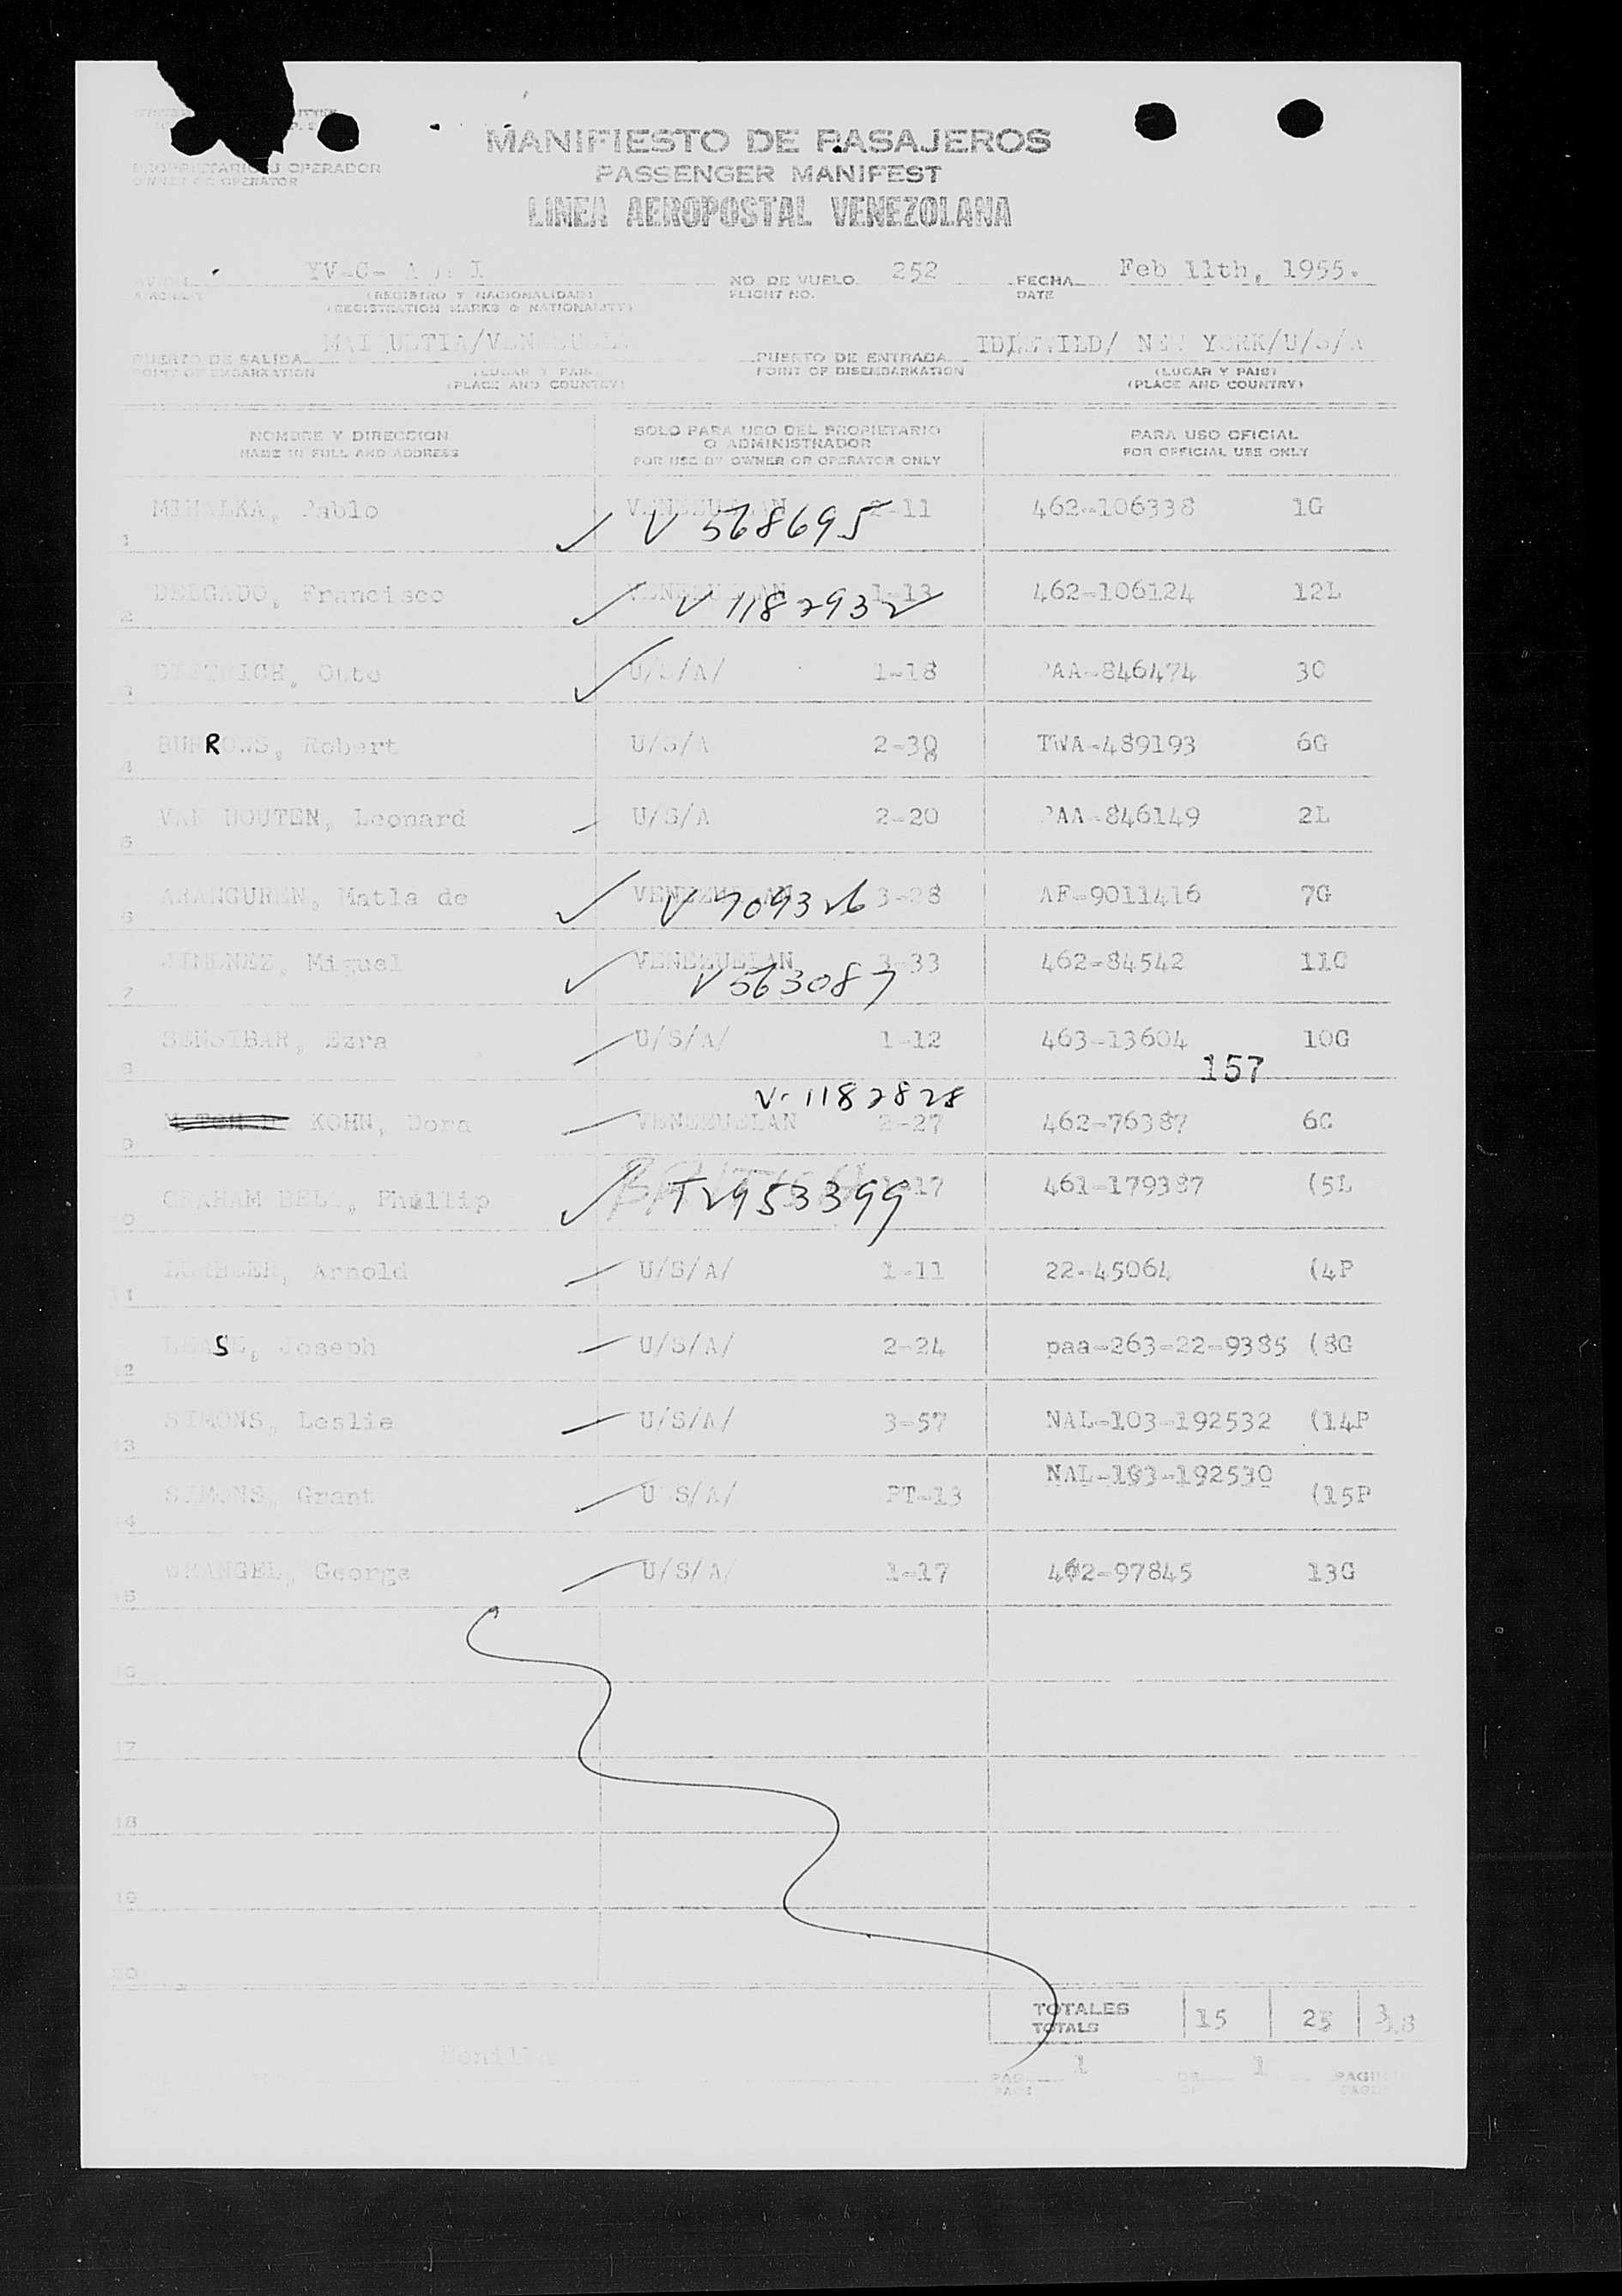 PROPRIETARIO U OPERADOR
OWNER OR OPERATOR
MANIFIESTO DE PASAJEROS
PASSENGER MANIFEST
LINEA AEROPOSTAL VENEZOLANA
YV-C-
NO DE VUELO 252
FLIGHT NO.
FECHA Feb 11th, 1955.
DATE
(REGISTRO Y NACIONALIDAD)
(REGISTRATION MARKS & NATIONALITY)
PUERTO DE SALIDA
POINT OF EMBARKATION
(LUGAR Y PAIS)
(PLACE AND COUNTRY)
PUERTO DE ENTRADA IDLEWILD/ NEW YORK/U/S/A
POINT OF DISEMBARKATION
(LUGAR Y PAIS)
(PLACE AND COUNTRY)
NOMBRE Y DIRECCION
NAME IN FULL AND ADDRESS
SOLO PARA USO DEL PROPIETARIO
O ADMINISTRADOR
FOR USE BY OWNER OR OPERATOR ONLY
PARA USO OFICIAL
FOR OFFICIAL USE ONLY
1 MIHALKA, Pablo VENEZUELAN 2-11 462-106338 1G
V 568695
2 DELGADO, Francisco VENEZUELAN 1-13 462-106124 12L
V 1182932
3 DIETRICH, Otto U/S/A/ 1-18 PAA-846474 3C
4 BURROWS, Robert U/S/A TWA-489193 6G
5 VAN HOUTEN, Leonard U/S/A 2-20 PAA-846149 2L
6 ARANGUREN, Matla de VENEZUELAN 3-28 AF-9011416 7G
V 709326
7 JIMENEZ, Miguel VENEZUELAN 3-33 462-84542 11C
V 563087
8 SENSIBAR, Ezra U/S/A/ 1-12 463-13604 10G
157
V-1182828
9 KOHN, Dora VENEZUELAN 2-27 462-76387 6C
10 GRAHAM BELL, Phillip 1-17 461-179387 (5L
T2953399
11 Arnold U/S/A/ 1-11 22-45064 (4P
12 Joseph U/S/A/ 2-24 paa-263-22-9385 (8G
13 SIMONS, Leslie U/S/A/ 3-57 NAL-103-192532 (14P
14 SIMONS, Grant U/S/A/ PT-13 NAL-103-192530 (15P
15 WRANGEL, George U/S/A/ 1-17 462-97845 13G
16
17
18
19
20
TOTALES 15
TOTALS
PAG. 1 DE 1
PAGE OF